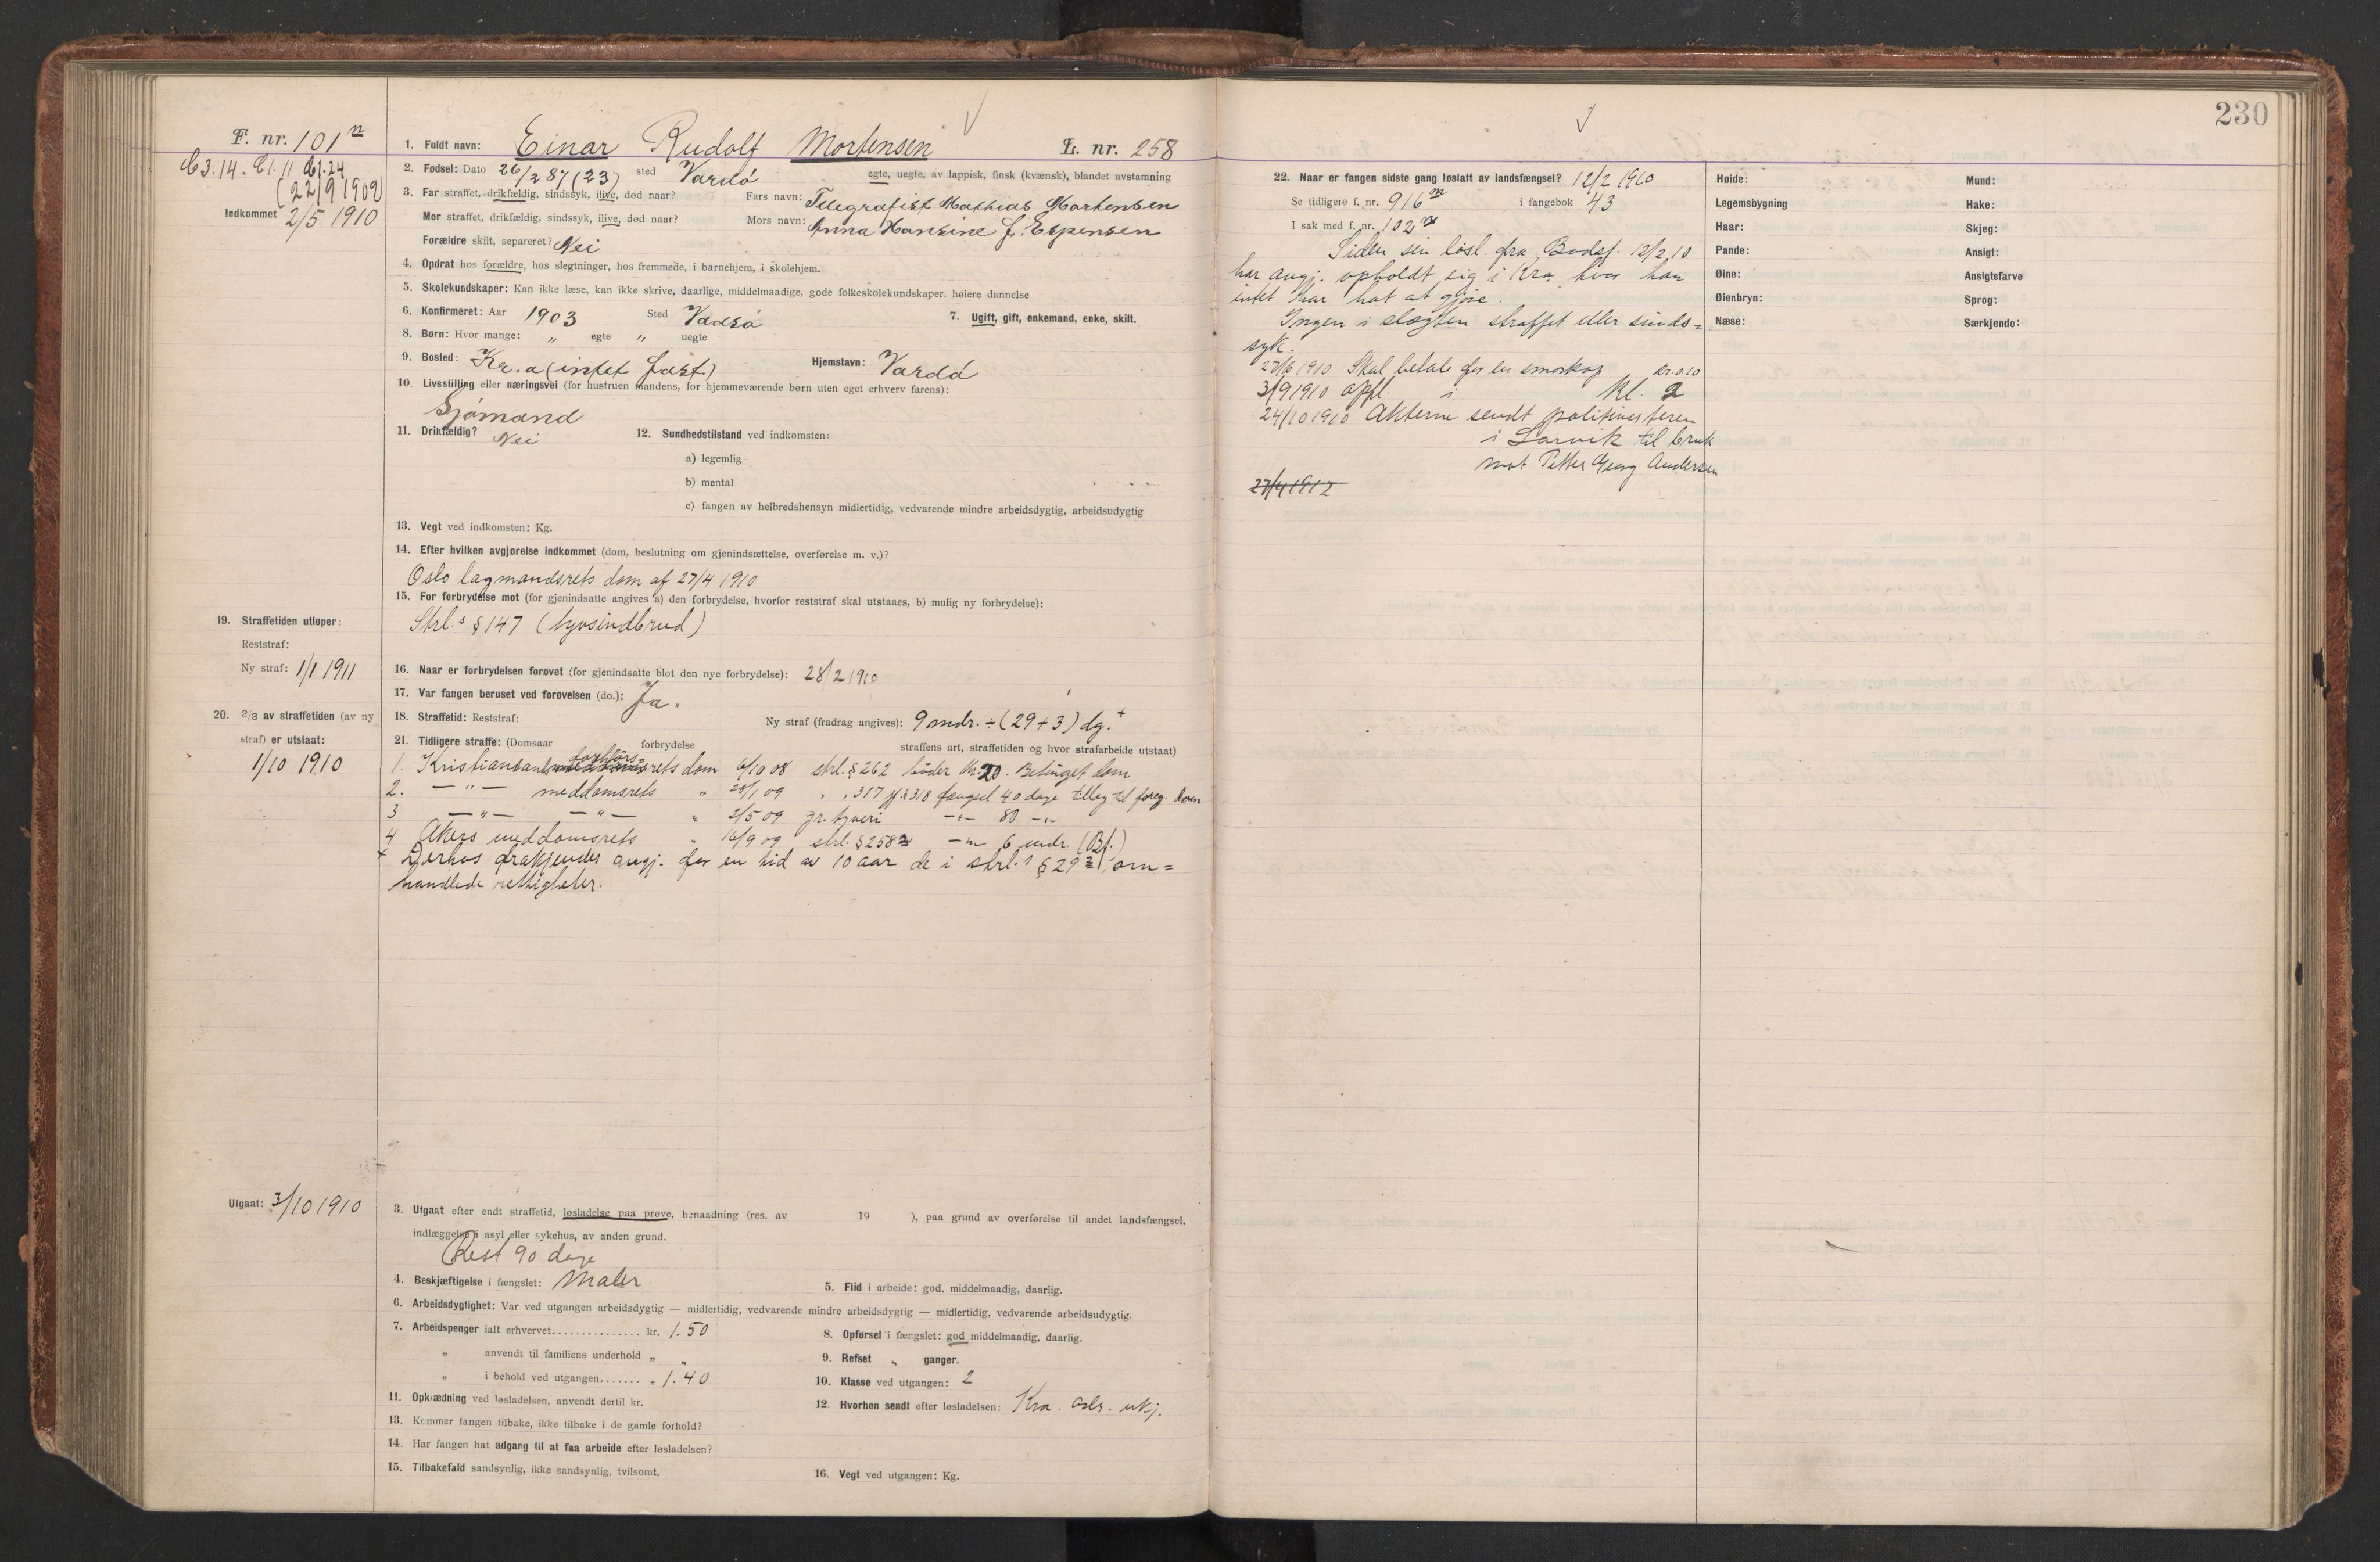 230
F. nr. 101 n
C 3.14. Cl. 11 Cj. 24
(22/9 1909)
Indkommet 2/5 1910
1. Fuldt navn: Einar Rudolf Mortensen L. nr. 258
2. Fødsel: Dato 26/2 87 (23) sted Vardø egte, uegte, av lappisk, finsk (kvænsk), blandet avstamning
3. Far straffet, drikfældig, sindssyk, ilive, død naar? Fars navn: Telegrafist Mathias Mortensen
Mor straffet, drikfældig, sindssyk, ilive, død naar? Mors navn: Anna Hansine f. Espensen
Forældre skilt, separeret? Nei
4. Opdrat hos forældre, hos slegtninger, hos fremmede, i barnehjem, i skolehjem.
5. Skolekundskaper: Kan ikke læse, kan ikke skrive, daarlige, middelmaadige, gode folkeskolekundskaper. høiere dannelse
6. Konfirmeret: Aar 1903 Sted Vadsø 7. Ugift, gift, enkemand, enke, skilt.
8. Børn: Hvor mange: „ egte „ uegte
9. Bosted: Kr.a (intet fast) Hjemstavn: Vardø
10. Livsstilling eller næringsvei (for hustruen mandens, for hjemmeværende børn uten eget erhverv farens):
Sjømand
11. Drikfældig? Nei 12. Sundhedstilstand ved indkomsten:
a) legemlig
b) mental
c) fangen av helbredshensyn midlertidig, vedvarende mindre arbeidsdygtig, arbeidsudygtig
13. Vegt ved indkomsten: Kg.
14. Efter hvilken avgjørelse indkommet (dom, beslutning om gjenindsættelse, overførelse m. v.)?
Oslo lagmandsrets dom af 27/4 1910
15. For forbrydelse mot (for gjenindsatte angives a) den forbrydelse, hvorfor reststraf skal utstaaes, b) mulig ny forbrydelse):
Strl.s § 147 (tyvsindbrud)
19. Straffetiden utløper:
Reststraf:
Ny straf: 1/1 1911
16. Naar er forbrydelsen forøvet (for gjenindsatte blot den nye forbrydelse): 28/2 1910
17. Var fangen beruset ved forøvelsen (do.): Ja.
20. 2/3 av straffetiden (av ny straf) er utstaat:
1/10 1910
18. Straffetid: Reststraf: Ny straf (fradrag angives): 9 mdr. ÷ (29+3) dg. +
21. Tidligere straffe: (Domsaar forbrydelse straffens art, straffetiden og hvor strafarbeide utstaat)
1. Kristiansands forhörsrets dom 6/10 08 strl. § 262 böder kr. 20. Betinget dom
2. — " — meddomsrets " 28/1 09 " " 317 jf. § 318 fængsel 40 dage tillæg til foreg. dom
3 — " — — " — " 2/5 09 gr. tyveri — " — 80 — " —
4 Akers meddomsrets " 16/9 09 strl. § 258 — " — 6 mdr. (Bf.)
+ Derhos frakjendes angj. for en tid av 10 aar de i strl.s § 29 2 om=
handlede rettigheter.
Utgaat: 3/10 1910
3. Utgaat efter endt straffetid, løsladelse paa prøve, benaadning (res. av 19 ), paa grund av overførelse til andet landsfængsel,
indlæggelse i asyl eller sykehus, av anden grund.
Rest 90 dage
4. Beskjæftigelse i fængslet: Maler 5. Flid i arbeide: god, middelmaadig, daarlig.
6. Arbeidsdygtighet: Var ved utgangen arbeidsdygtig — midlertidig, vedvarende mindre arbeidsdygtig — midlertidig, vedvarende arbeidsudygtig.
7. Arbeidspenger ialt erhvervet............... kr. 1.50 8. Opførsel i fængslet: god middelmaadig, daarlig.
„ anvendt til familiens underhold „ „ 9. Refset „ ganger.
„ i behold ved utgangen....... „ 1.40 10. Klasse ved utgangen: 2
11. Opklædning ved løsladelsen, anvendt dertil kr. 12. Hvorhen sendt efter løsladelsen: Kra. adr. ukj.
13. Kommer fangen tilbake, ikke tilbake i de gamle forhold?
14. Har fangen hat adgang til at faa arbeide efter løsladelsen?
15. Tilbakefald sandsynlig, ikke sandsynlig, tvilsomt. 16. Vegt ved utgangen: Kg.
22. Naar er fangen sidste gang løslatt av landsfængsel? 12/2 1910
Se tidligere f. nr. 916 m i fangebok 43
I sak med f. nr. 102 n
Siden sin løsl. fra Bodsf. 12/2 10
har angj. opholdt sig i Kra. hvor han
intet har hat at gjøre.
Ingen i slægten straffet eller sinds=
syk.
27/6 1910 Skal betale for en smørkop kr. 0.10
3/9 1910 opfl. i kl. 2
24/10 1910 Akterne sendt politimesteren
i Larvik til bruk
mot Petter Georg Andersen
27/4 1912
Høide: Mund:
Legemsbygning Hake:
Haar: Skjeg:
Pande: Ansigt:
Øine: Ansigtsfarve
Øienbryn: Sprog:
Næse: Særkjende: